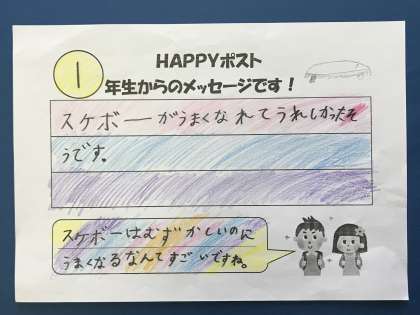 1
HAPPYポスト
年生からのメッセージです！
スケボーがうまくなれてうれしかったそ
うです。
スケボーはむずかしいのに
うまくなるなんてすごいですね。